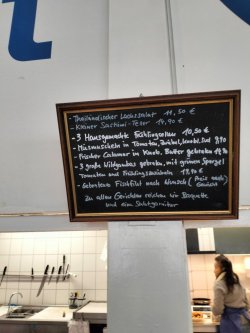 t
- Thailändischer Lachssalat 11,50 €
- Kleiner Sashimi-Teller 14,90 €
- 3 Hausgemachte Frühlingsrollen 10,50 €
- Miesmuscheln in Tomaten, Zwiebel,
- Frischer Calamar in Knob. Butter gebraten
- 3 große Wildgambas gebraten, mit grünem Spargel
Tomaten und Frühlingszwiebeln 19,90 €
- Gebratenes Fischfilet nach Wunsch (Preis nach
Gewicht)
zu allen Gerichten reichen wir Baguette
und eine Salatgarnitur